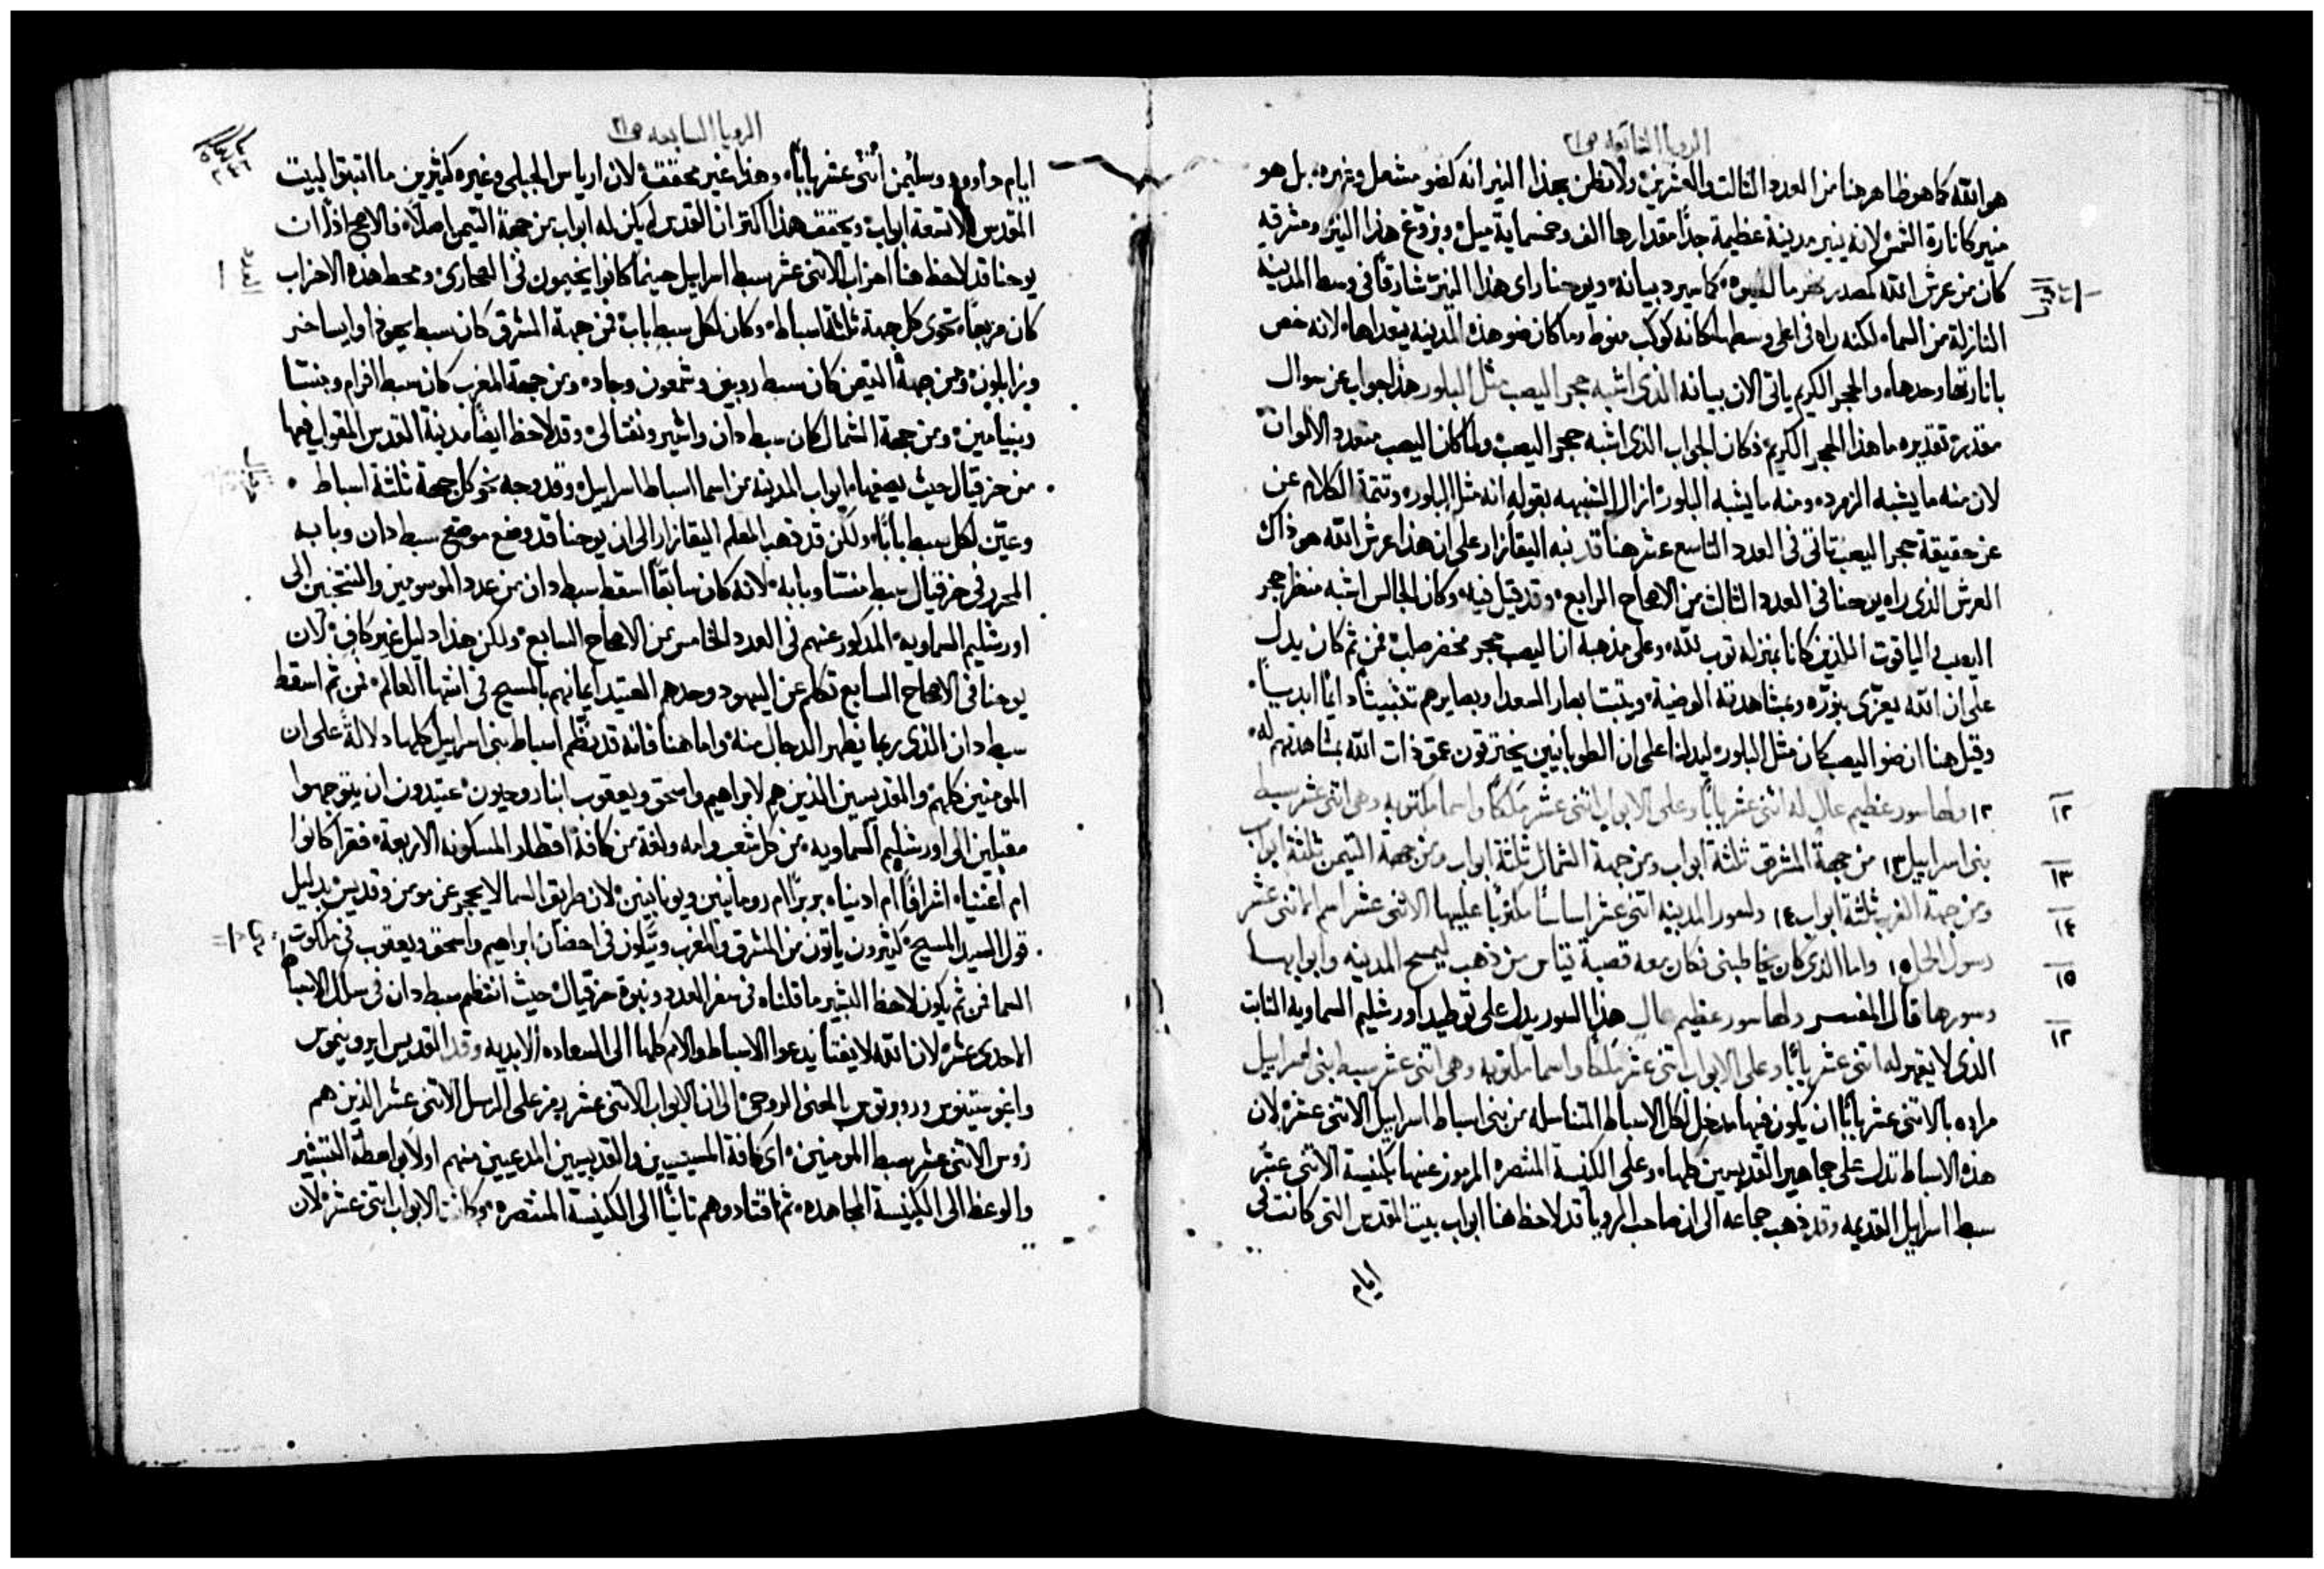 الرويا السابعه ص٢١
هو الله كما هو ظاهر هنا من العدد الثالث والعشرين ولا تظن بهذا النير انه كضو مشعل وغيره بل هو
منير كانارة الشمس لانه ينير مدينة عظيمة جدًا مقدارها الف وخمسماية ميل وبزوغ هذا النير ومشرقه
كان من عرش الله كما سيرد بيانه ويوحنا راى هذا النير شارقًا في وسط المدينه
النازلة من السماء لكنه راه في اعلى وسطها كانه كوكب منوط وما كان ضو هذه المدينه يتعداها لانه خص
بانارتها وحدها والحجر الكريم ياتي الان بيانه الذي اشبه حجر اليصب مثل البلور هذا جواب عن سوال
مقدر تقديره ما هذا الحجر الكريم فكان الجواب الذي اشبه حجر اليصب ولما كان اليصب متعدد الالوان
لان منه ما يشبه الزمرد ومنه ما يشبه البلور ازال الشبهه بقوله انه مثل البلور وتتمة الكلام عن
عن حقيقة حجر اليصب تاتي في العدد التاسع عشر هنا قد نبه اليقازار على ان هذا عرش الله هو ذاك
العرش الذي راه يوحنا في العدد الثالث من الاصحاح الرابع وقد قيل فيه وكان الجالس اشبه منظر حجر
اليصب والياقوت اللذين كانا بمنزلة ثوب لله وعلى مذهبه ان اليصب حجر مخضر صلب فمن ثم كان يدل
على ان الله يعزي بنوره وبمشاهدته الوضية ويثبت ابصار السعدا وبصايرهم تثبيتًا دايمًا ابديًا
وقيل هنا ان ضو اليصب كان مثل البلور ليدلنا على ان الطوبانيين يخترقون عمق ذات الله بمشاهدتهم له
١٢ ولها سور عظيم عالٍ له اثنى عشر بابًا وعلى الابواب اثنى عشر ملكًا واسما مكتوبه وهي اثنى عشر سبط
بني اسراييل ١٣ من جهة المشرق ثلثة ابواب ومن جهة الشمال ثلثة ابواب ومن جهة التيمن ثلثة ابواب
ومن جهة الغرب ثلثة ابواب ١٤ ولسور المدينه اثنى عشر اساسًا مكتوبًا عليها الاثنى عشر اسم اثنى عشر
رسول الحمل ١٥ واما الذي كان يخاطبني فكان معه قصبة قياس من ذهب ليمسح المدينه وابوابها
وسورها قال المفسر ولها سور عظيم عالٍ هذا السور يدل على توطيد اورشليم السماويه الثابت
الذي لا يقهر له اثنى عشر بابًا وعلى الابواب اثنى عشر ملكًا واسما مكتوبه وهي اثنى عشر سبط بني اسراييل
مراده بالاثنى عشر بابًا ان يكون فيها مدخل لكل الاسباط المتناسله من بني اسباط اسراييل الاثنى عشر لان
هذه الاسباط تدل على جماهير القديسين كلها وعلى الكنيسة المنتصره المرموز عنها بكنيسة الاثنى عشر
سبط اسراييل القديمه وقد ذهب جماعه الى ان صاحب الرويا قد لاحظ هنا ابواب بيت المقدس التي كانت في
ايام
١٢
١٣
١٤
١٥
١٢
الرويا السابعه ص٢١
ايام داوود وسليمن اثنى عشر بابًا وهذا غير محقق لان ارياس الجبلي وغيره كثيرين ما اثبتوا لبيت
المقدس الا تسعة ابواب ويحقق هذا اكثر ان القدس لم يكن له ابواب من جهة التيمن اصلًا فالاصح اذًا ان
يوحنا قد لاحظ هنا احزاب الاثنى عشر سبط اسراييل حينما كانوا يخيمون في الصحاري ومحط هذه الاحزاب
كان مربعًا تحوي كل جهة ثلثة اسباط وكان لكل سبط باب فمن جهة المشرق كان سبط يهوذا وايساخر
وزابلون ومن جهة التيمن كان سبط روبين وشمعون وجاد ومن جهة المغرب كان سبط افرام ومنسا
وبنيامين ومن جهة الشمال كان سبط دان واشير ونفتالي وقد لاحظ ايضًا مدينة القدس المقول فيها
من حزقيال حيث يصفها بابواب المدينه من اسما اسباط اسراييل وقد وجه نحو كل جهة ثلثة اسباط
وعيّن لكل سبط بابًا ولكن قد ذهب المعلم اليقازار الى ان يوحنا قد وضع موضع سبط دان وبابه
المحرر في حزقيال سبط منسا وبابه لانه كان سابقًا اسقط سبط دان من عدد الموسومين والمنتخبين الى
اورشليم السماويه المذكور عنهم في العدد الخامس من الاصحاح السابع ولكن هذا دليل غير كافٍ لان
يوحنا في الاصحاح السابع تكلم عن اليهود وحدهم العتيد ايمانهم بالمسيح في انتها العالم فمن ثم اسقط
سبط دان الذي ربما يظهر الدجال منه واما هنا فانه قد نظم اسباط بني اسراييل كلها دلالةً على ان
المومنين كلهم والقديسين الذين هم لابراهيم واسحق ويعقوب ابنا روحيون عتيدون ان يتوجهوا
مقبلين الى اورشليم السماويه من كل شعب وامه ولغة من كافة اقطار المسكونه الاربعة فقرا كانوا
ام اغنيا اشرافًا ام ادنيا بربرًا ام رومانيين ويونانيين لان طريق السما لا يحجر عن مومن وقديس بدليل
قول السيد المسيح كثيرون ياتون من المشرق والمغرب ويتكون في احضان ابراهيم واسحق ويعقوب في ملكوت
السما فمن ثم يكون لاحظ البشير ما قلناه في سفر العدد ونبوة حزقيال حيث انتظم سبط دان في سلك الاسباط
الاحدى عشر لان الله لا يفتا يدعوا الاسباط والامم كلها الى السعاده الابديه وقد القديس ايرونيموس
واغوستينوس وروبوتوس بالمعنى الروحي الى ان الابواب الاثنى عشر يرمز على الرسل الاثنى عشر الذين هم
روس الاثنى عشر سبط المومنين اي كافة المسيحيين والقديسين المدعيين منهم اولًا بواسطة التبشير
والوعظ الى الكنيسة المجاهده ثم اقتادوهم ثانيًا الى الكنيسة المنتصره وكانت الابواب اثنى عشر لان
العدد
حزقيال